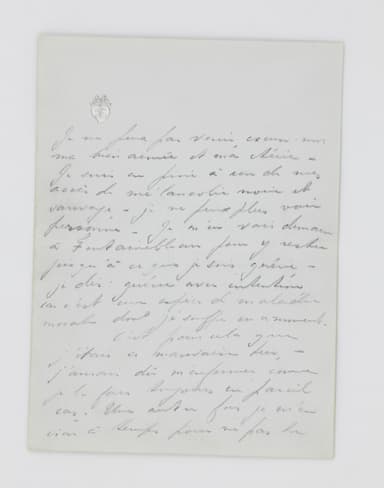 Je ne peux pas venir, excusez-moi
ma bien aimée et ma chérie –
Je suis en proie à un de mes
accès de mélancolie noire et
sauvage – je ne peux plus voir
personne – Je m'en vais demain
à Fontainebleau pour y rester
jusqu'à ce que je sois guérie –
je dis: guérie avec intention
car c'est une espèce de maladie
morale dont je souffre en ce moment.
C'est pour cela que
j'étais si mauvaise hier, –
j'aurais dû m'enfermer comme
je le fais toujours en pareil
cas. Une autre fois je m'en
irai à temps pour ne pas la